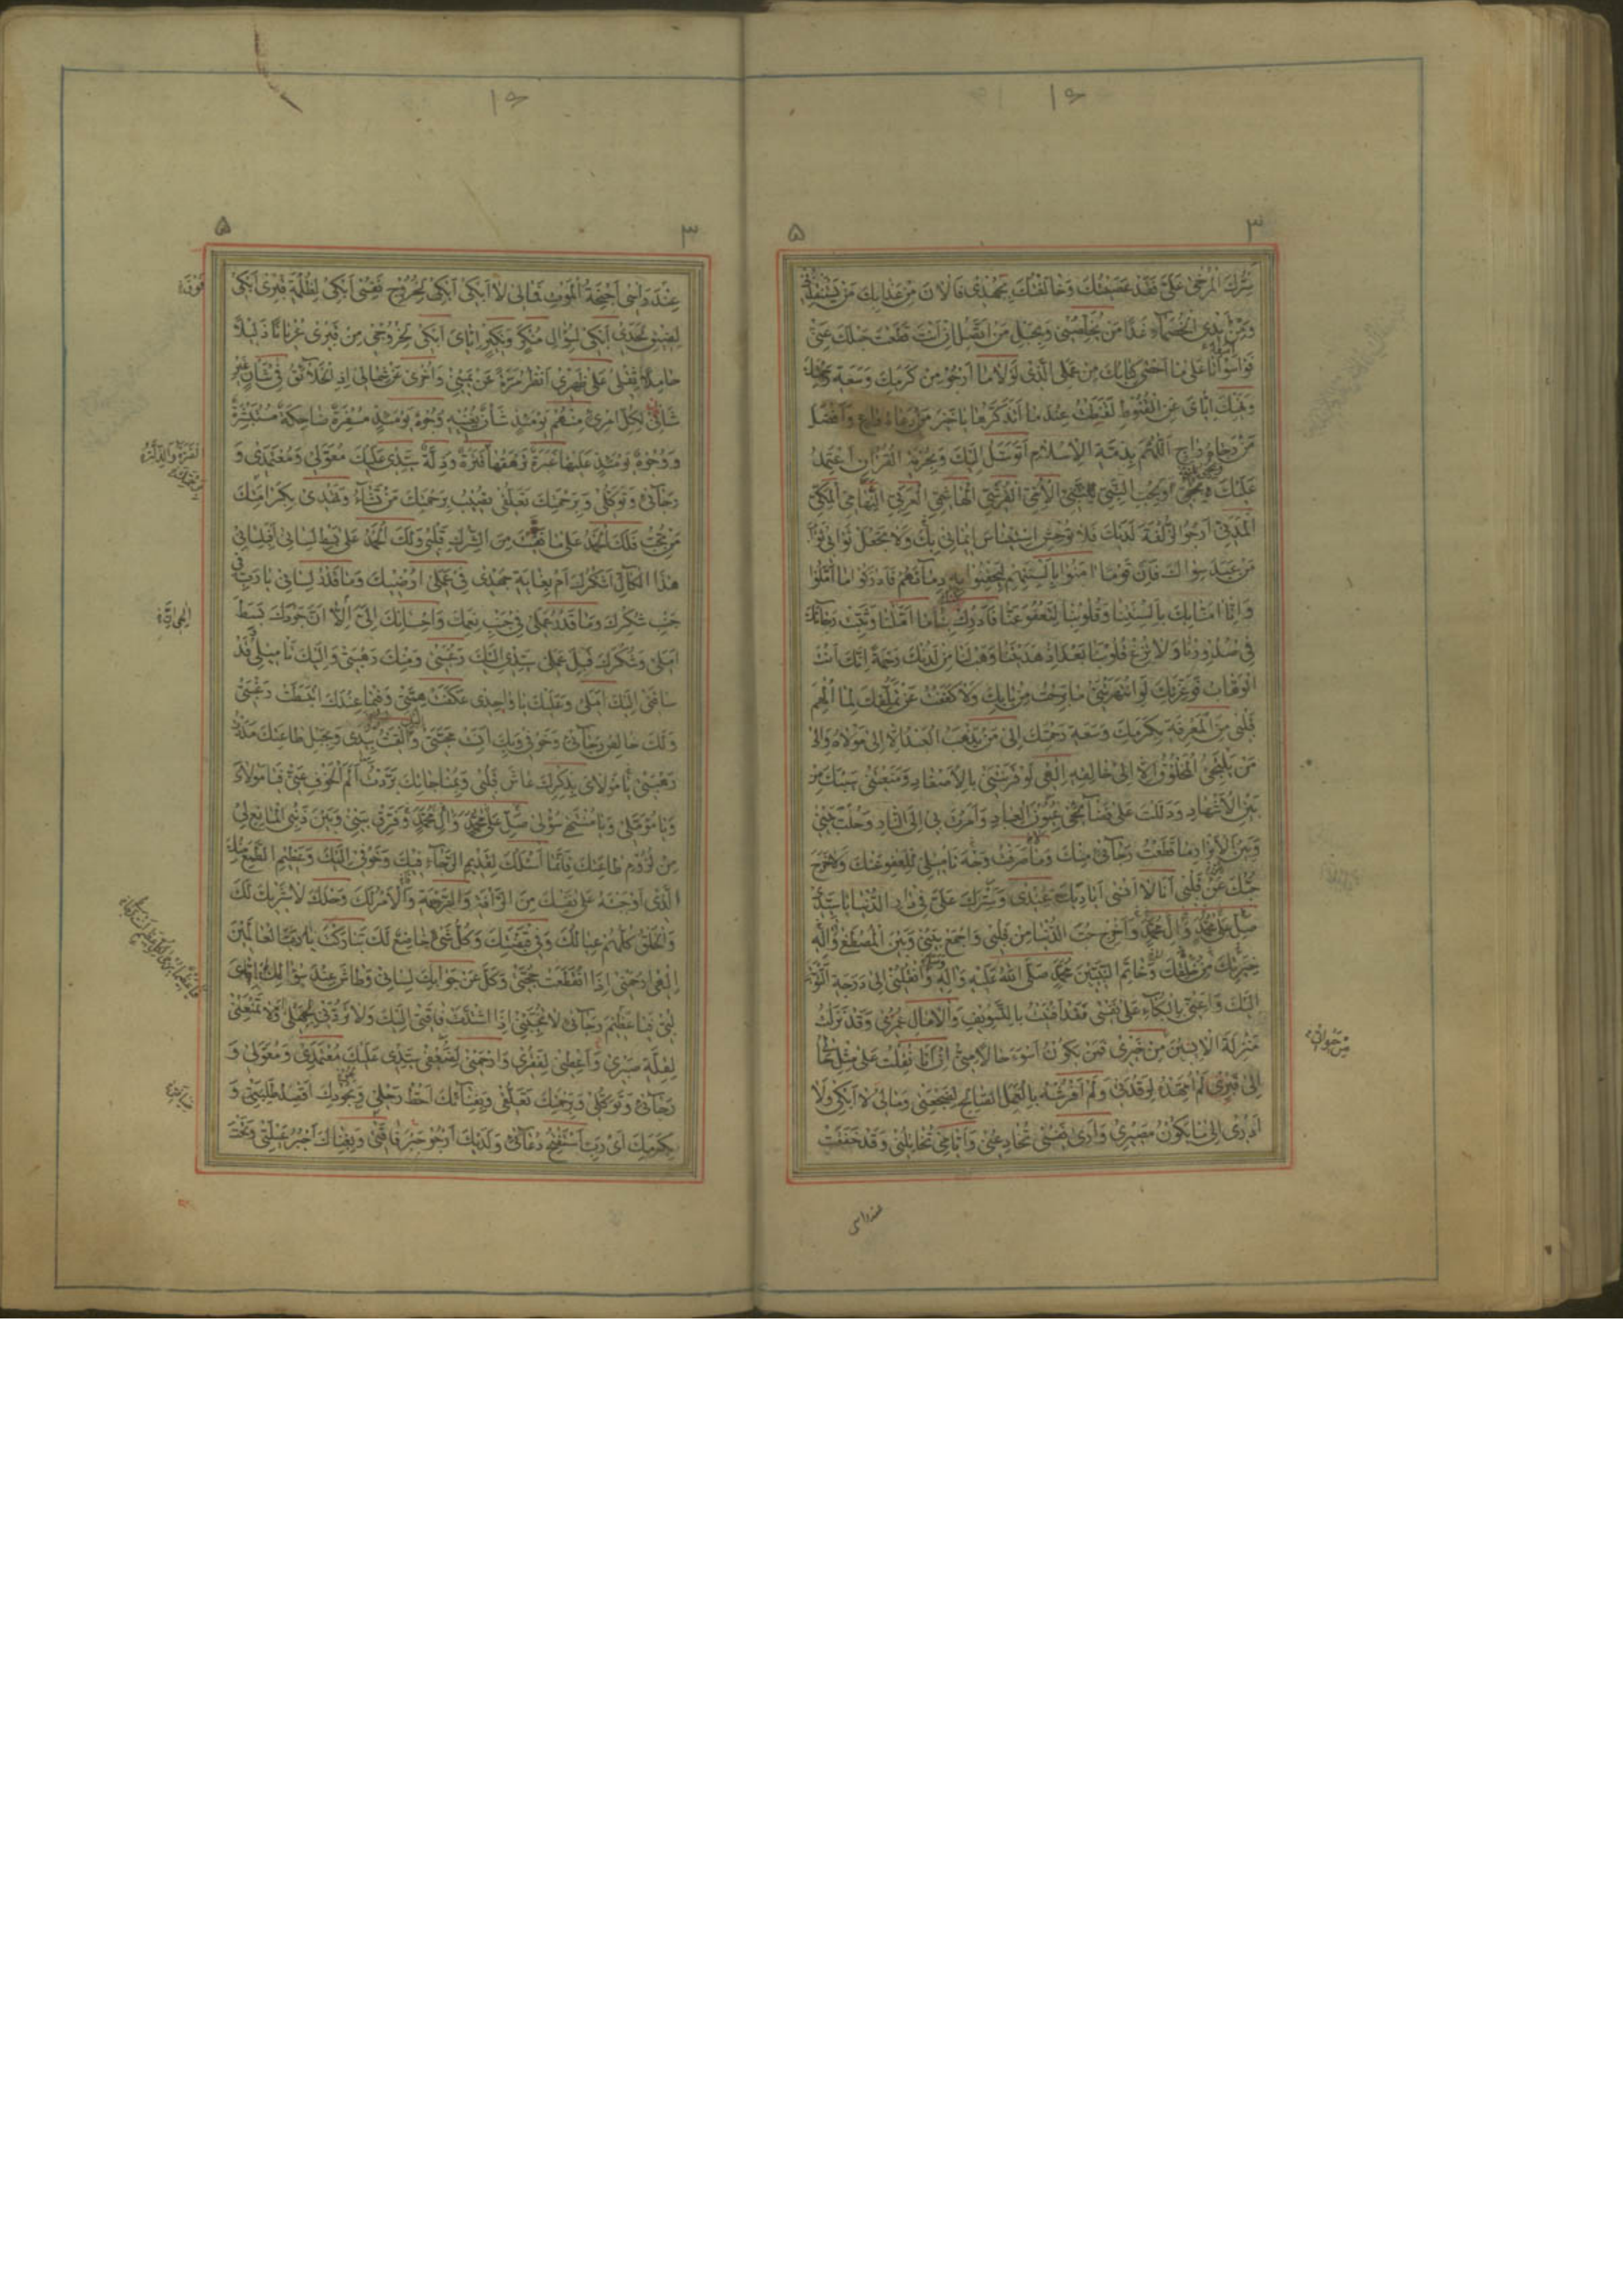 سترك المرخى على فقد عصيتك وخالفتك بجهدى فالان من عذابك من يستنقذنى
ومن أيدى الخصماء غدا من يخلصنى وبحبل من اتصل ان انت قطعت حبلك عنى
فواسوأتا على ما احصى كتابك من عملى الذى لولا ما ارجو من كرمك وسعة رحمتك
ونهيك اياى عن القنوط لقنطت عند ما اتذكرها يا خير من دعاه داع وافضل
من رجاه راج اللهم بذمة الاسلام اتوسل اليك وبحرمة القرآن اعتمد
عليك وبحب النبى الامى القرشى الهاشمى العربى التهامى المكى
المدنى ارجو الزلفة لديك فلا توحش استيناس ايمانى بك ولا تجعل ثوابى ثواب
من عبد سواك فان قوما امنوا بالسنتهم ليحقنوا به دماءهم فادركوا ما املوا
وانا امنا بك بالسنتنا وقلوبنا لتعفو عنا فادرك بنا ما املنا وثبت رجاءك
فى صدورنا ولا تزغ قلوبنا بعد اذ هديتنا وهب لنا من لدنك رحمة انك انت
الوهاب فوعزتك لو انتهرتنى ما برحت من بابك ولا كففت عن تملقك لما الهم
قلبى من المعرفة بكرمك وسعة رحمتك الى من يذهب العبد الا الى مولاه والى
من يلتجئ المخلوق الا الى خالقه الهى لو قرنتنى بالاصفاد ومنعتنى سيبك من
بين الاشهاد ودللت على فضائحى عيون العباد وامرت بى الى النار وحلت بينى
وبين الابرار ما قطعت رجائى منك وما صرفت وجه تاميلى للعفو عنك ولا خرج
حبك عن قلبى انا لا انسى اياديك عندى وسترك على فى دار الدنيا يا سيدى
صل على محمد وال محمد واخرج حب الدنيا من قلبى واجمع بينى وبين المصطفى واله
خيرتك من خلقك وخاتم النبيين محمد صلى الله عليه واله وانقلنى الى درجة التوبة
اليك واعنى بالبكاء على نفسى فقد افنيت بالتسويف والامال عمرى وقد نزلت
منزلة الايسين من خيرى فمن يكون اسوء حالا منى ان انا نقلت على مثل حالى
الى قبرى لم امهده لرقدتى ولم افرشه بالعمل الصالح لضجعتى ومالى لا ابكى ولا
ادرى الى ما يكون مصيرى وارى نفسى تخادعنى وايامى تخاتلنى وقد خفقت
عند راسى
عند راسى اجنحة الموت فمالى لا ابكى ابكى لخروج نفسى ابكى لظلمة قبرى ابكى
لضيق لحدى ابكى لسؤال منكر ونكير اياى ابكى لخروجى من قبرى عريانا ذليلا
حاملا ثقلى على ظهرى انظر مرة عن يمينى واخرى عن شمالى اذ الخلائق فى شان غير
شانى لكل امرئ منهم يومئذ شان يغنيه وجوه يومئذ مسفرة ضاحكة مستبشرة
ووجوه يومئذ عليها غبرة ترهقها قترة وذلة سيدى عليك معولى ومعتمدى و
رجائى وتوكلى وبرحمتك تعلقى تصيب برحمتك من تشاء وتهدى بكرامتك
من تحب فلك الحمد على ما نقيت من الشرك قلبى ولك الحمد على بسط لسانى افبلسانى
هذا الكال اشكرك ام بغاية جهدى فى عملى ارضيك وما قدر لسانى يا رب فى
جنب شكرك وما قدر عملى فى جنب نعمك واحسانك الى الا ان جودك بسط
املى وشكرك قبل عملى سيدى اليك رغبتى ومنك رهبتى واليك تاميلى فقد
ساقنى اليك املى وعليك يا واحدى عكفت همتى وفيما عندك انبسطت رغبتى
ولك خالص رجائى وخوفى وبك انست محبتى والقيت بيدى وبحبل طاعتك مددت
رهبتى يا مولاى بذكرك عاش قلبى وبمناجاتك بردت الم الخوف عنى فيا مولاى
ويا مؤملى ويا منتهى سؤلى صل على محمد وال محمد وفرق بينى وبين ذنبى المانع لى
من لزوم طاعتك فانما اسئلك لقديم الرجاء فيك وخوفى اليك وعظيم الطمع منك
الذى اوجبته على نفسك من الرافة والرحمة والامر لك وحدك لا شريك لك
والخلق كلهم عيالك وفى قبضتك وكل شئ خاضع لك تباركت يا رب العالمين
الهى ارحمنى اذا انقطعت حجتى وكل عن جوابك لسانى وطاش عند سؤالك اياى
لبى فيا عظيم رجائى لا تخيبنى اذا اشتدت فاقتى اليك ولا تردنى لجهلى ولا تمنعنى
لقلة صبرى واعطنى لفقرى وارحمنى لضعفى سيدى عليك معتمدى ومعولى و
رجائى وتوكلى وبرحمتك تعلقى وبفنائك احط رحلى وبجودك اقصد طلبتى و
بكرمك اى رب استفتح دعائى ولديك ارجو جبر فاقتى وبغناك اجبر عيلتى وتحت